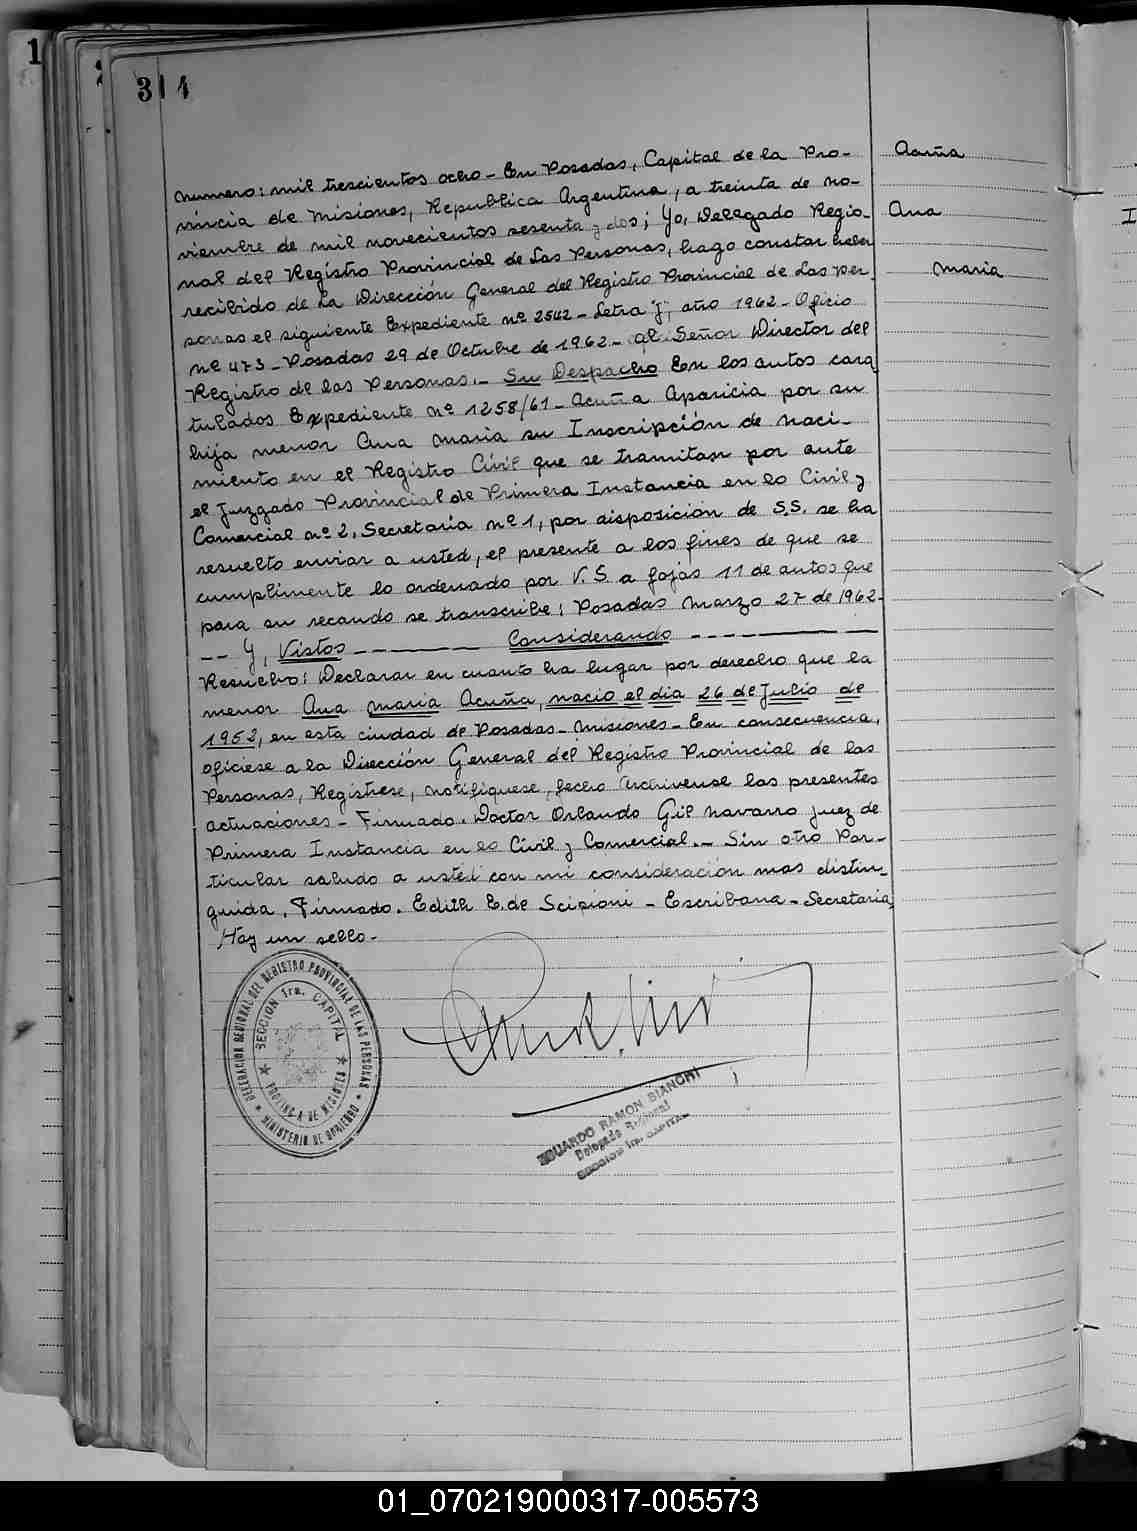 314
Numero: mil trescientos ocho - En Posadas, Capital de la Pro-
vincia de Misiones, Republica Argentina, a treinta de no-
viembre de mil novecientos sesenta y dos; Yo, Delegado Regio-
nal del Registro Provincial de Las Personas, hago constar haber
recibido de La Dirección General del Registro Provincial de Las Per-
sonas el siguiente Expediente nº 2542 - Letra "J", año 1962 - Oficio
nº 473 - Posadas 29 de Octubre de 1962 - Al Señor Director del
Registro de las Personas. - Su Despacho En los autos cara
tulados Expediente Nº 1258/61 - Acuña Aparicia por su
hija menor Ana Maria su Inscripción de naci-
miento en el Registro Civil que se tramitan por ante
el Juzgado Provincial de Primera Instancia en lo Civil y
Comercial nº 2, Secretaria nº 1, por disposición de S.S. se ha
resuelto enviar a usted, el presente a los fines de que se
cumplimente lo ordenado por V. S. a fojas 11 de autos que
para su recaudo se transcribe: Posadas Marzo 27 de 1962 -
-- Y, Vistos ------- Considerando ---------
Resuelvo: Declarar en cuanto ha lugar por derecho que la
menor Ana Maria Acuña, nacio el dia 26 de Julio de
1952, en esta ciudad de Posadas - Misiones - En consecuencia,
ofíciese a la Dirección General del Registro Provincial de las
Personas, Regístrese, notifiquese, fecho Archivense las presentes
actuaciones - Firmado. Doctor Orlando Gil Navarro Juez de
Primera Instancia en lo Civil y Comercial. - Sin otro Par-
ticular saludo a usted con mi consideración mas distin-
guida. Firmado. Edith E. de Scipioni - Escribana - Secretaria,
Hay un sello -
Acuña
Ana
Maria
DELEGACION REGIONAL DEL REGISTRO PROVINCIAL DE LAS PERSONAS
SECCION 1ra. CAPITAL
PROVINCIA DE MISIONES
MINISTERIO DE GOBIERNO
EDUARDO RAMON BIANCHI
Delegado Regional
SECCION 1ra. CAPITAL
01_070219000317-005573